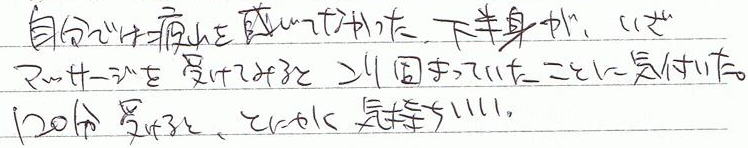 自分では疲れを感じてなかった下半身が、いざ
マッサージを受けてみるとコリ固まっていたことに気付いた。
120分受けると、とにかく気持ちいい。